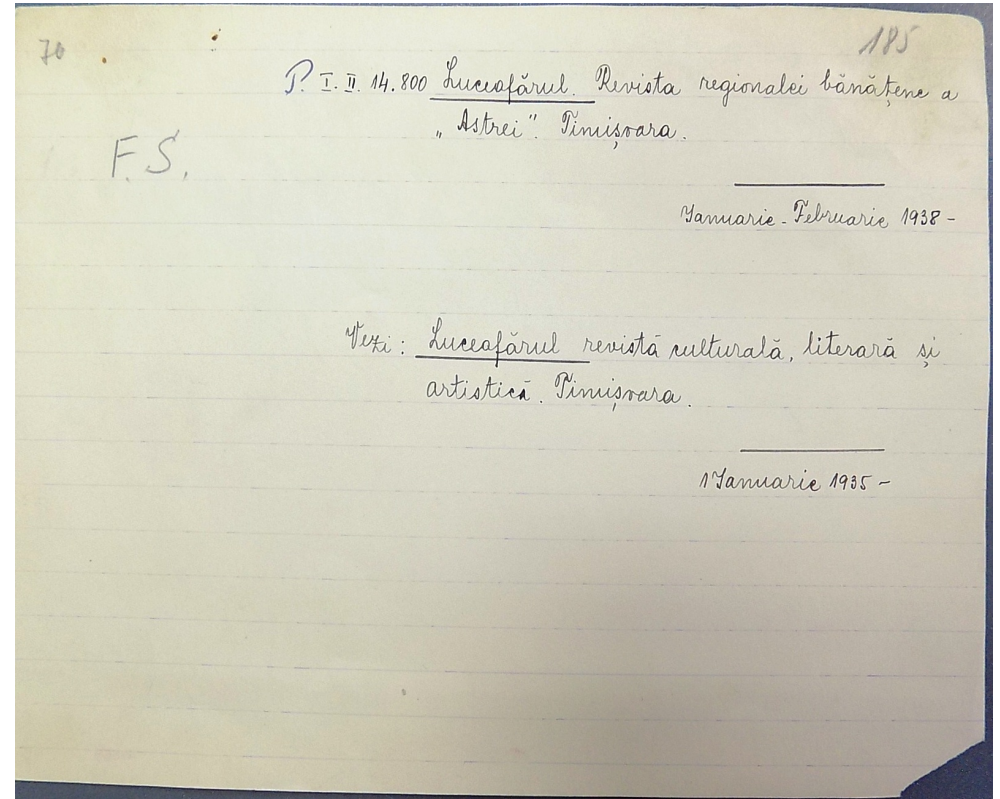 70
185
P. I. II. 14.800 Luceafărul. Revista regionalei bănăţene a
„Astrei”. Timişoara.
F. S.
Ianuarie - Februarie 1938 -
Vezi: Luceafărul revistă culturală, literară şi
artistică. Timişoara.
1 Ianuarie 1935 -